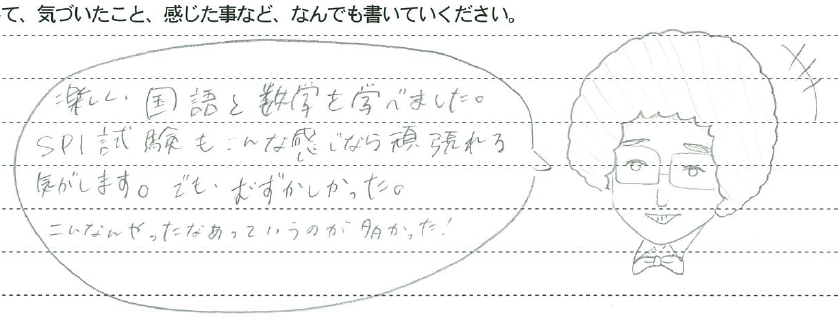 て、気づいたこと、感じた事など、なんでも書いていください。
楽しい国語と数学を学べました。
SPI試験もこんな感じなら頑張れる
気がします。でも、むずかしかった。
こんなんやったなあっていうのが多かった！